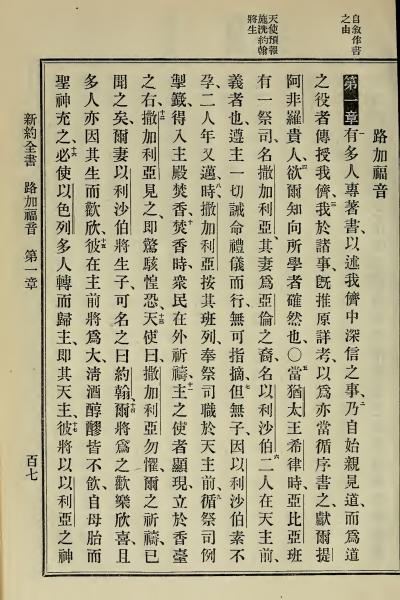 自敘作書
之由
天使預報
施洗約翰
將生
路加福音
第一章 有多人專著書、以述我儕中深信之事、二乃自始親見道、而爲道
之役者傳授我儕、三我於諸事、旣推原詳考、以爲亦當循序書之、獻爾提
阿非羅貴人、四欲爾知向所學者確然也、〇五當猶太王希律時、亞比亞班
有一祭司、名撒加利亞、其妻爲亞倫之裔、名以利沙伯、六二人在天主前、
義者也、遵主一切誡命禮儀而行、無可指摘、七但無子、因以利沙伯素不
孕、二人年又邁、八時撒加利亞按其班列、奉祭司職於天主前、九循祭司例
掣籤、得入主殿焚香、十焚香時、衆民在外祈禱、十一主之使者顯現、立於香臺
之右、十二撒加利亞見之、卽驚駭惶恐、十三天使曰、撒加利亞勿懼、爾之祈禱已
聞之矣、爾妻以利沙伯將生子、可名之曰約翰、十四爾將爲之歡樂欣喜、且
多人亦因其生而歡欣、十五彼在主前將爲大、淸酒醇醪皆不飮、自母胎而
聖神充之、十六必使以色列多人轉而歸主、卽其天主、十七彼將以以利亞之神
新約全書 路加福音 第一章 百七